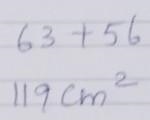 63 + 56
119 cm²